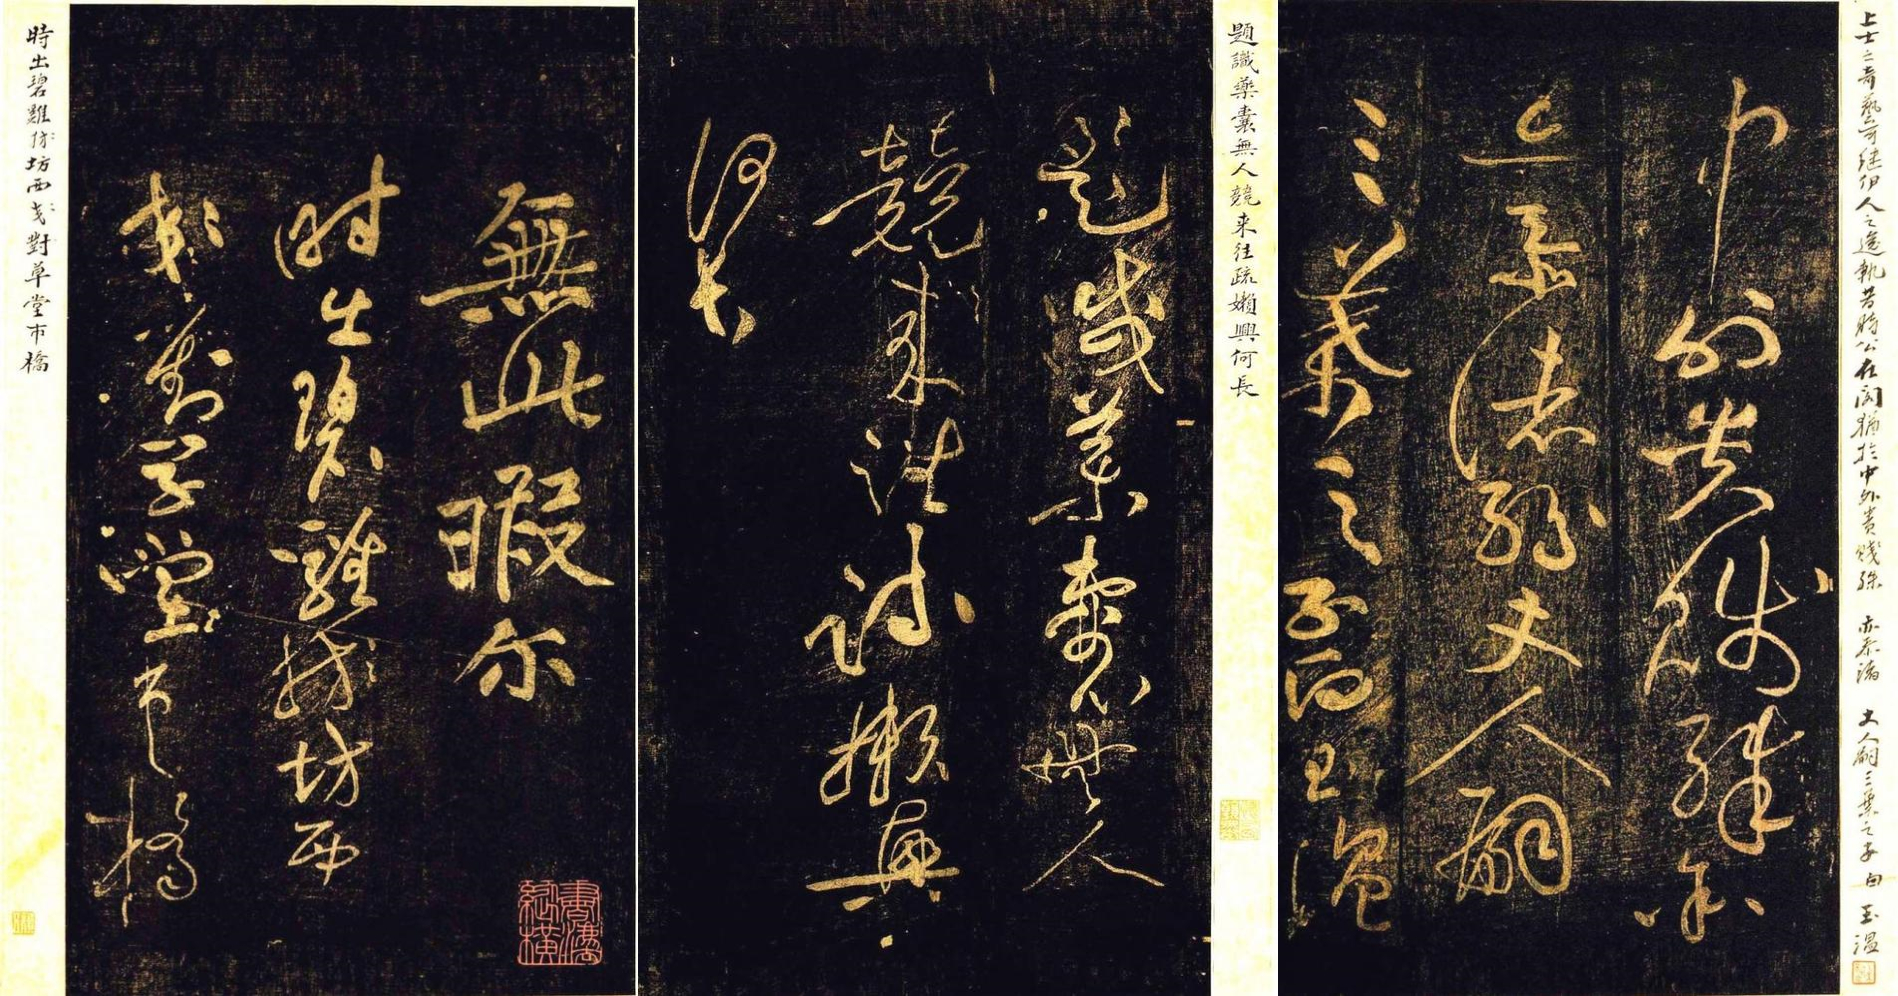 上士之奇藝可繼伊人之逸執昔時公在閣猶於中外貴賤殊
亦慕海
丈人嗣三葉之
白玉溫
中外貴賤殊
亦慕
丈人嗣
三葉之
白玉溫
題識藥囊無人競来往疏嬾興何長
題識藥囊無人
競来往疏嬾興
何長
無此暇尔
時出碧雞坊西
對草堂市橋
時出碧雞坊西對草堂市橋